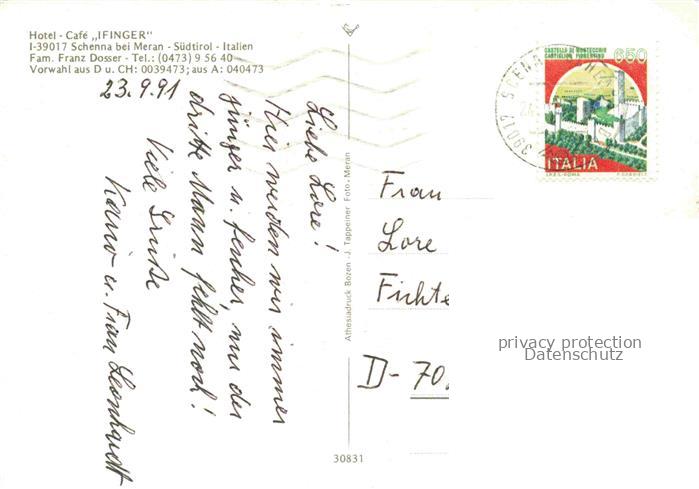 Hotel - Café „IFINGER"
I-39017 Schenna bei Meran - Südtirol - Italien
Fam. Franz Dosser - Tel.: (0473) 9 56 40
Vorwahl aus D u. CH: 0039473; aus A: 040473
23.9.91
Liebe Lore!
Hier werden wir immer
jünger u. fescher, nur der
dritte Mann fehlt noch!
Viele Grüße
u. Frau Leonhardt
Athesiadruck Bozen - J. Tappeiner Foto, Meran
30831
CASTELLO DI MONTECCHIO
CASTIGLION FIORENTINO
650
ITALIA
I.P.Z.S. ROMA
39017 SCENA
Frau
Lore
Fichte
D-70
privacy protection
Datenschutz